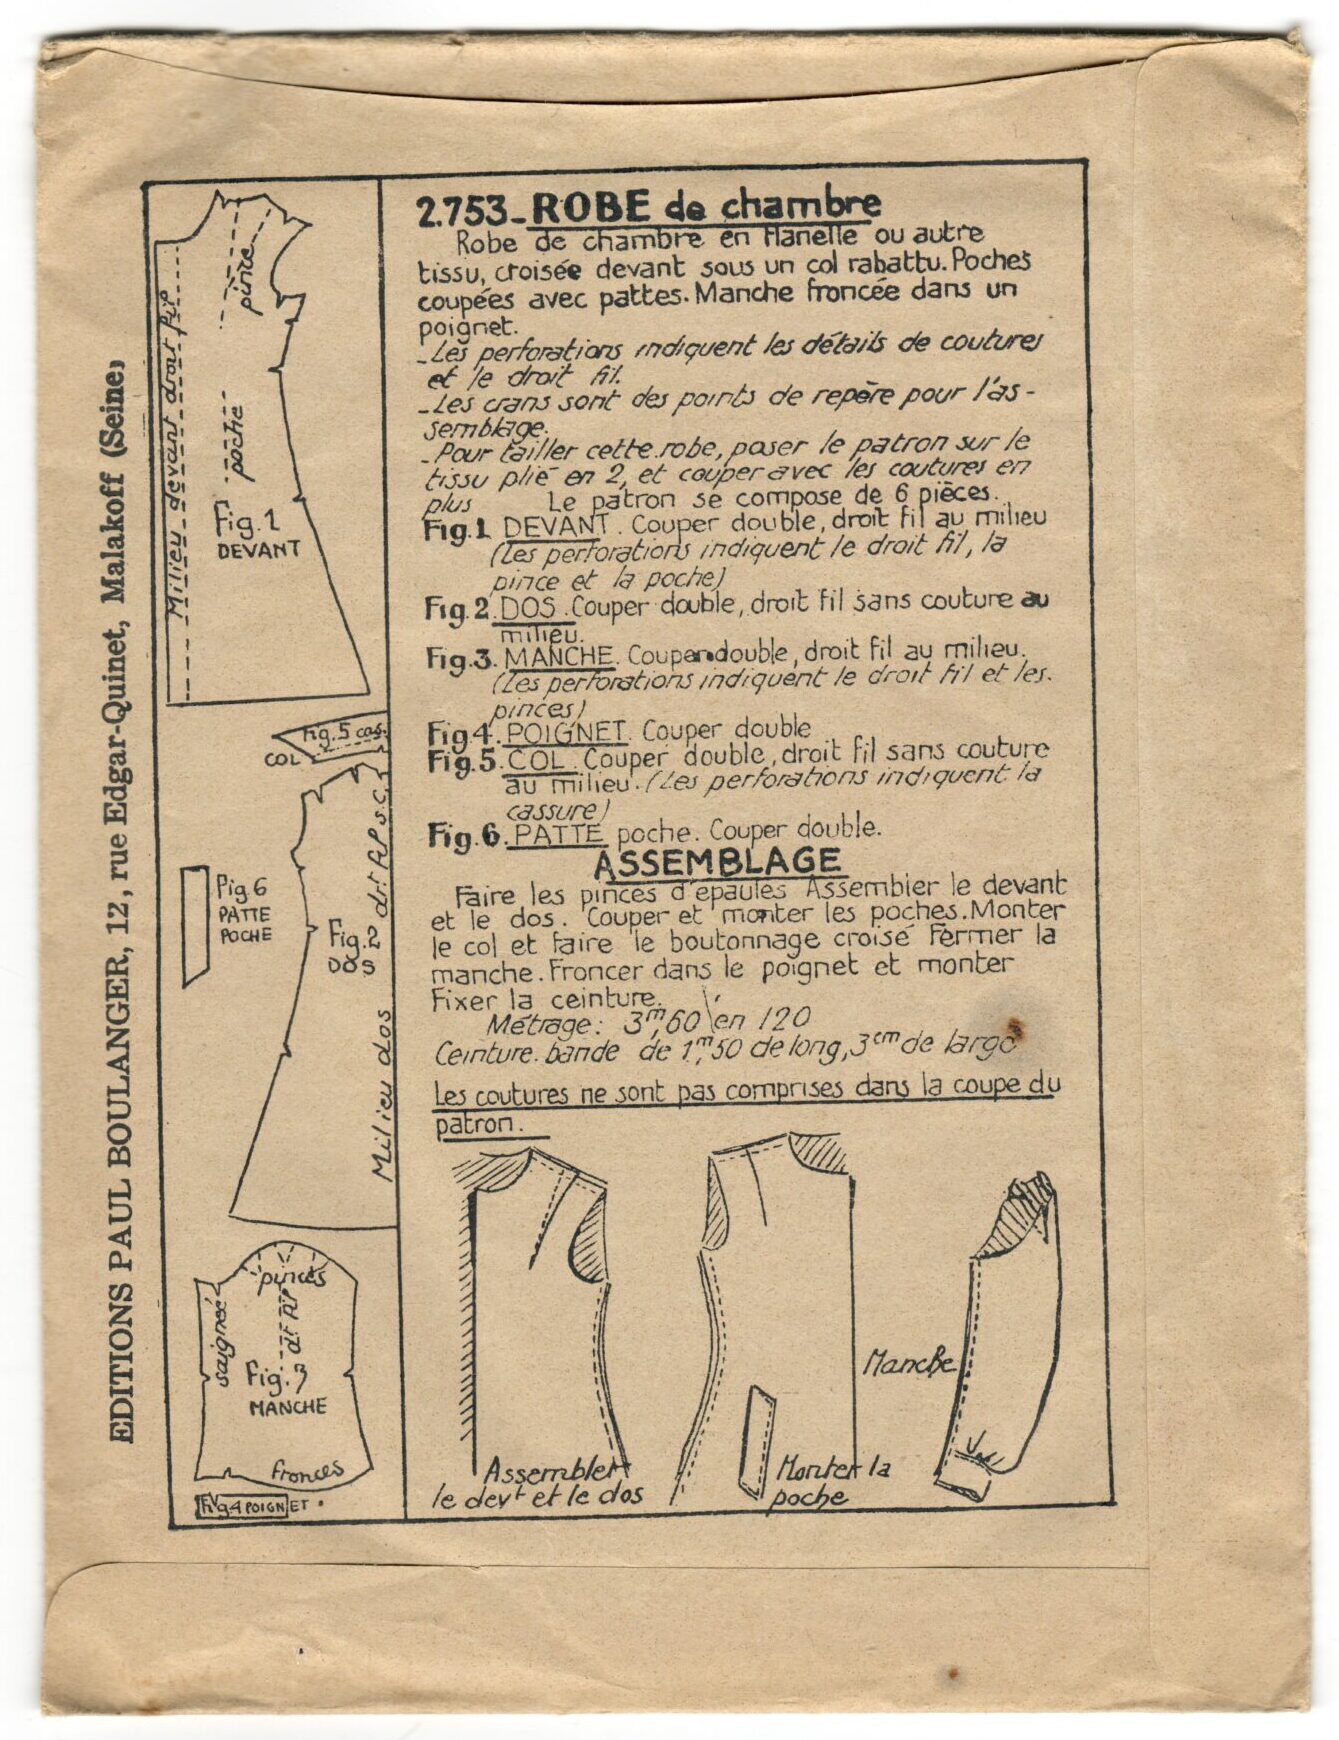 EDITIONS PAUL BOULANGER, 12, rue Edgar-Quinet, Malakoff (Seine)
pince
Milieu devant droit fil
poche
Fig.1
DEVANT
Fig.5 cas.
COL
Fig.6
PATTE
POCHE
Fig.2
DOS
Milieu dos drt fil s.c.
pinces
saignée
dt fil
Fig.3
MANCHE
fronces
Fig.4 POIGNET.
2.753_ROBE de chambre
Robe de chambre en flanelle ou autre
tissu, croisée devant sous un col rabattu. Poches
coupées avec pattes. Manche froncée dans un
poignet.
_Les perforations indiquent les détails de coutures
et le droit fil.
_Les crans sont des points de repère pour l'as-
semblage.
_Pour tailler cette robe, poser le patron sur le
tissu plié en 2, et couper avec les coutures en
plus Le patron se compose de 6 pièces.
Fig.1 DEVANT. Couper double, droit fil au milieu
(Les perforations indiquent le droit fil, la
pince et la poche)
Fig.2. DOS. Couper double, droit fil sans couture au
milieu.
Fig.3. MANCHE. Couper double, droit fil au milieu.
(Les perforations indiquent le droit fil et les.
pinces)
Fig4. POIGNET. Couper double
Fig.5. COL. Couper double, droit fil sans couture
au milieu. (Les perforations indiquent la
cassure)
Fig.6. PATTE poche. Couper double.
ASSEMBLAGE
Faire les pinces d'épaules Assembler le devant
et le dos. Couper et monter les poches. Monter
le col et faire le boutonnage croisé Fermer la
manche. Froncer dans le poignet et monter
Fixer la ceinture.
Métrage: 3m,60 en 120
Ceinture. bande de 1m,50 de long, 3cm de large
Les coutures ne sont pas comprises dans la coupe du
patron.
Manche
Assembler
le devt et le dos
Monter la
poche